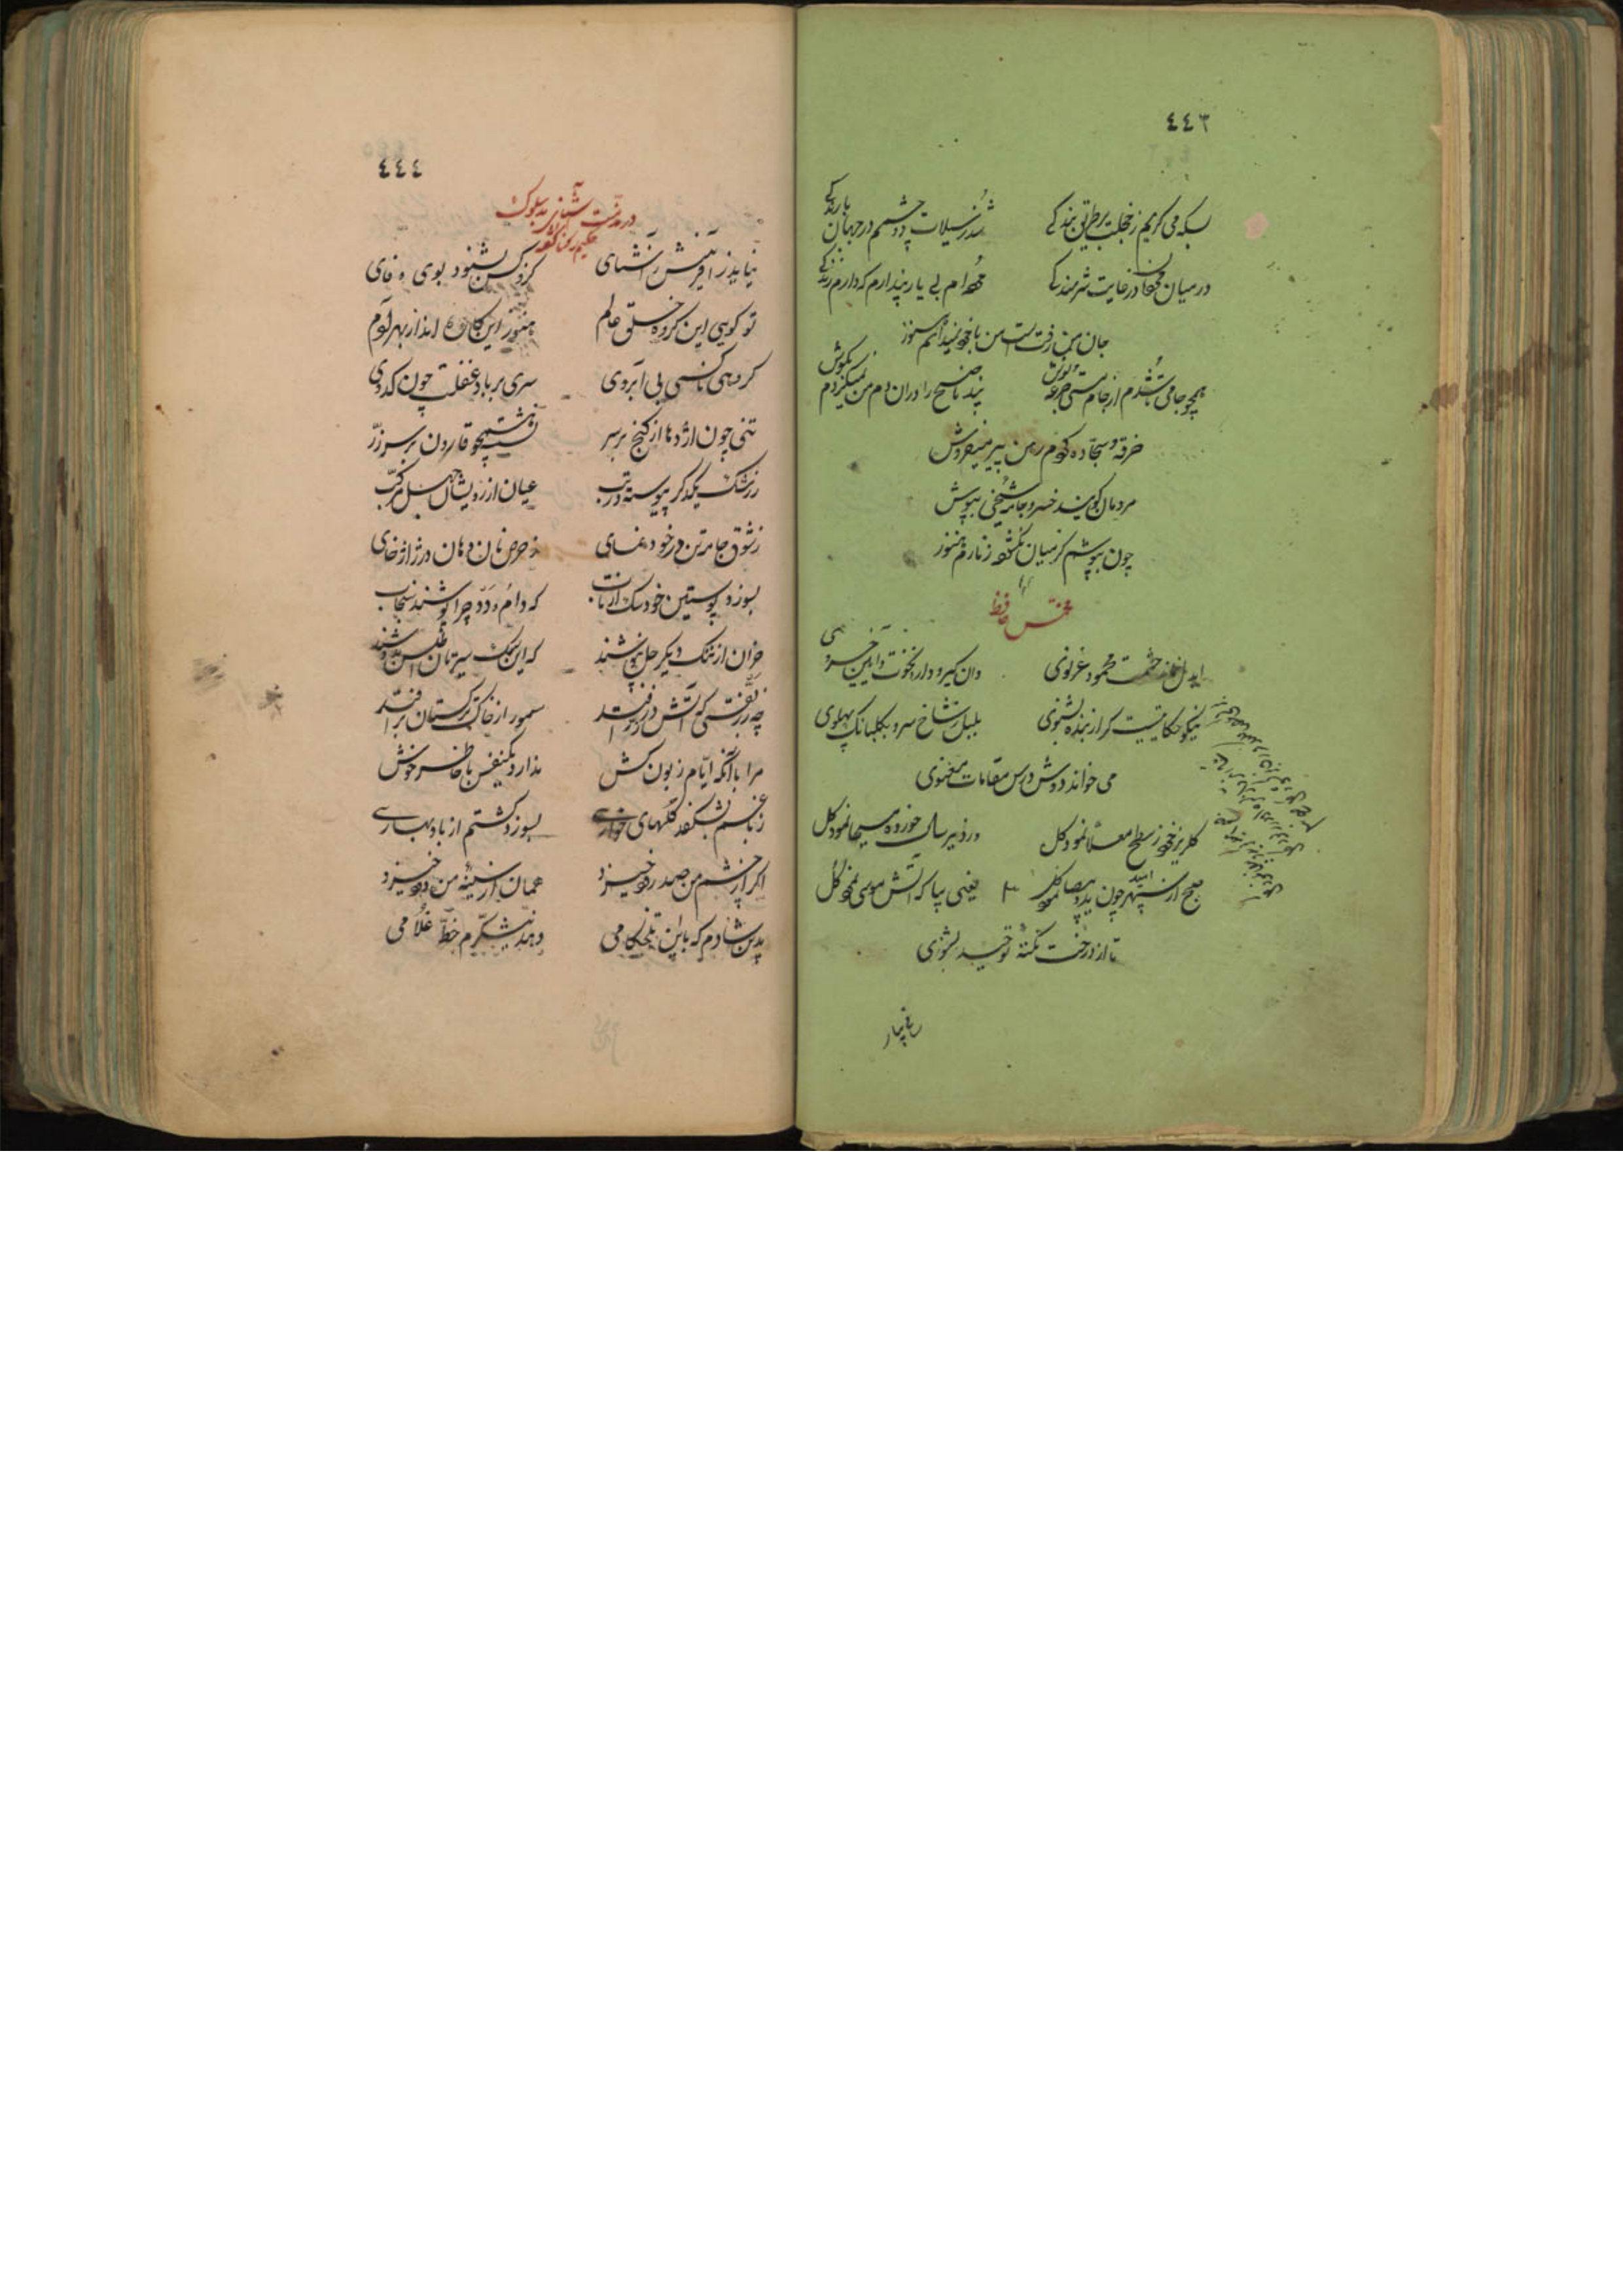 ٤٤٣
بسکه می کریم ز خجلت بر طریق بندکی
شد ز سیلاب دو چشمم در جهان بارندکی
در میان در غایت شرمندکی
مرده ام بی یار پندارم که دارم زندکی
جان من رفتست من با خود نپندارم هنوز
همچو جامی شدم از جام مستی جرعه نوش
پند ناصح را در آن دم من نمیکردم بکوش
خرقه و سجاده کردم رهن پیر میفروش
مردمان کویند خسرو جامه شیخی بپوش
چون بپوشم کز میان نکشوده زنارم هنوز
مخمس حافظ
ایدل حشمت محمود غزنوی
وان کیرودار و نخوت و آیین خسروی
نیکو حکایتیست کر از بنده بشنوی
بلبل ز شاخ سرو بکلبانک پهلوی
می خواند دوش درس مقامات معنوی
کلریز خود ز سطح معلا نمود کل
در دیر سال خورده مسیحا نمود کل
صبح از سپهر امید چون ید بیضا نمود کل
یعنی بیا که آتش موسی نمود کل
تا از درخت نکتهٔ توحید بشنوی
نیاید
٤٤٤
در مذمت
حکیم رکنا کوید
نیاید ز آفرینش آشنای
کزو کس بشنود بوی وفای
تو کویی این کروه خلق عالم
هنوز این کاروان اند از بهر آدم
کروهی ناکسی بی آبروی
سری پر باد غفلت چون کدوی
تنی چون اژدها از کنج بر سر
نشسته همچو قارون بر سر زر
ز رشک یکدکر پیوسته در تب
عیان از رویشان جهل مرکب
ز شوق جامه تن در خود نمای
ز حرص نان دهان در ژاژ خای
بسوزد پوستین خود سک از تاب
که دام و دد چرا پوشند سنجاب
خران از ننک دیکر جل نپوشند
که این یک سیرتان اطلس بدوشند
چه زربفتی که آتش در زر افتد
سمور از خاک ترکستان بر افتد
مرا با آنکه ایام زبون کش
نذارد یکنفس با خاطر خوش
ز باغم نشکفد کلهای خواری
بسوزد کشتم از باد بهاری
اکر از چشم من صد رود خیزد
همان از سینهٔ من دود خیزد
بدین شادم که با این تلخکامی
دهد نیشکرم خط غلامی